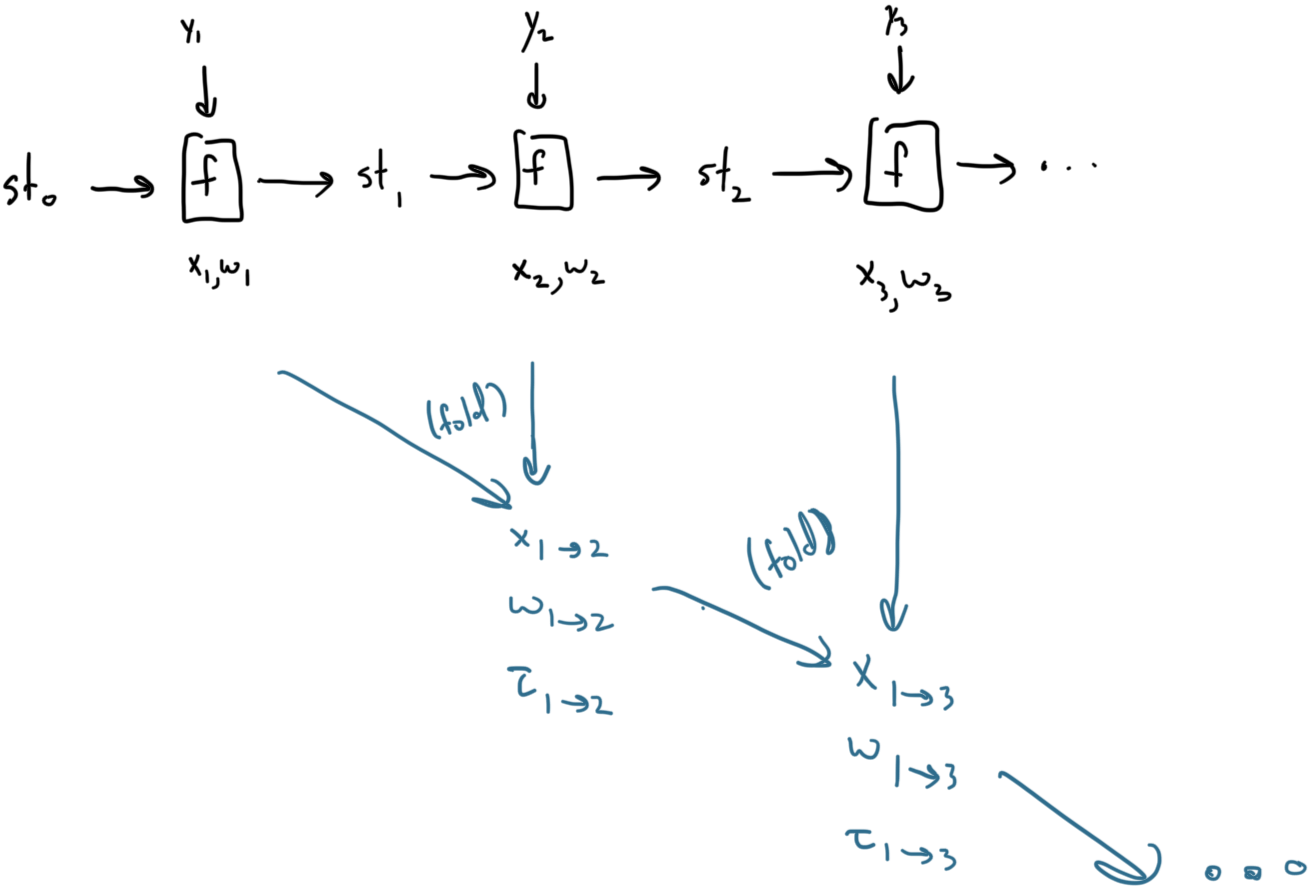 y₁ y₂ y₃
st₀ → f → st₁ → f → st₂ → f → ...
x₁,w₁ x₂,w₂ x₃,w₃
(fold)
x₁→₂
(fold)
w₁→₂
x₁→₃
τ₁→₂
w₁→₃
τ₁→₃